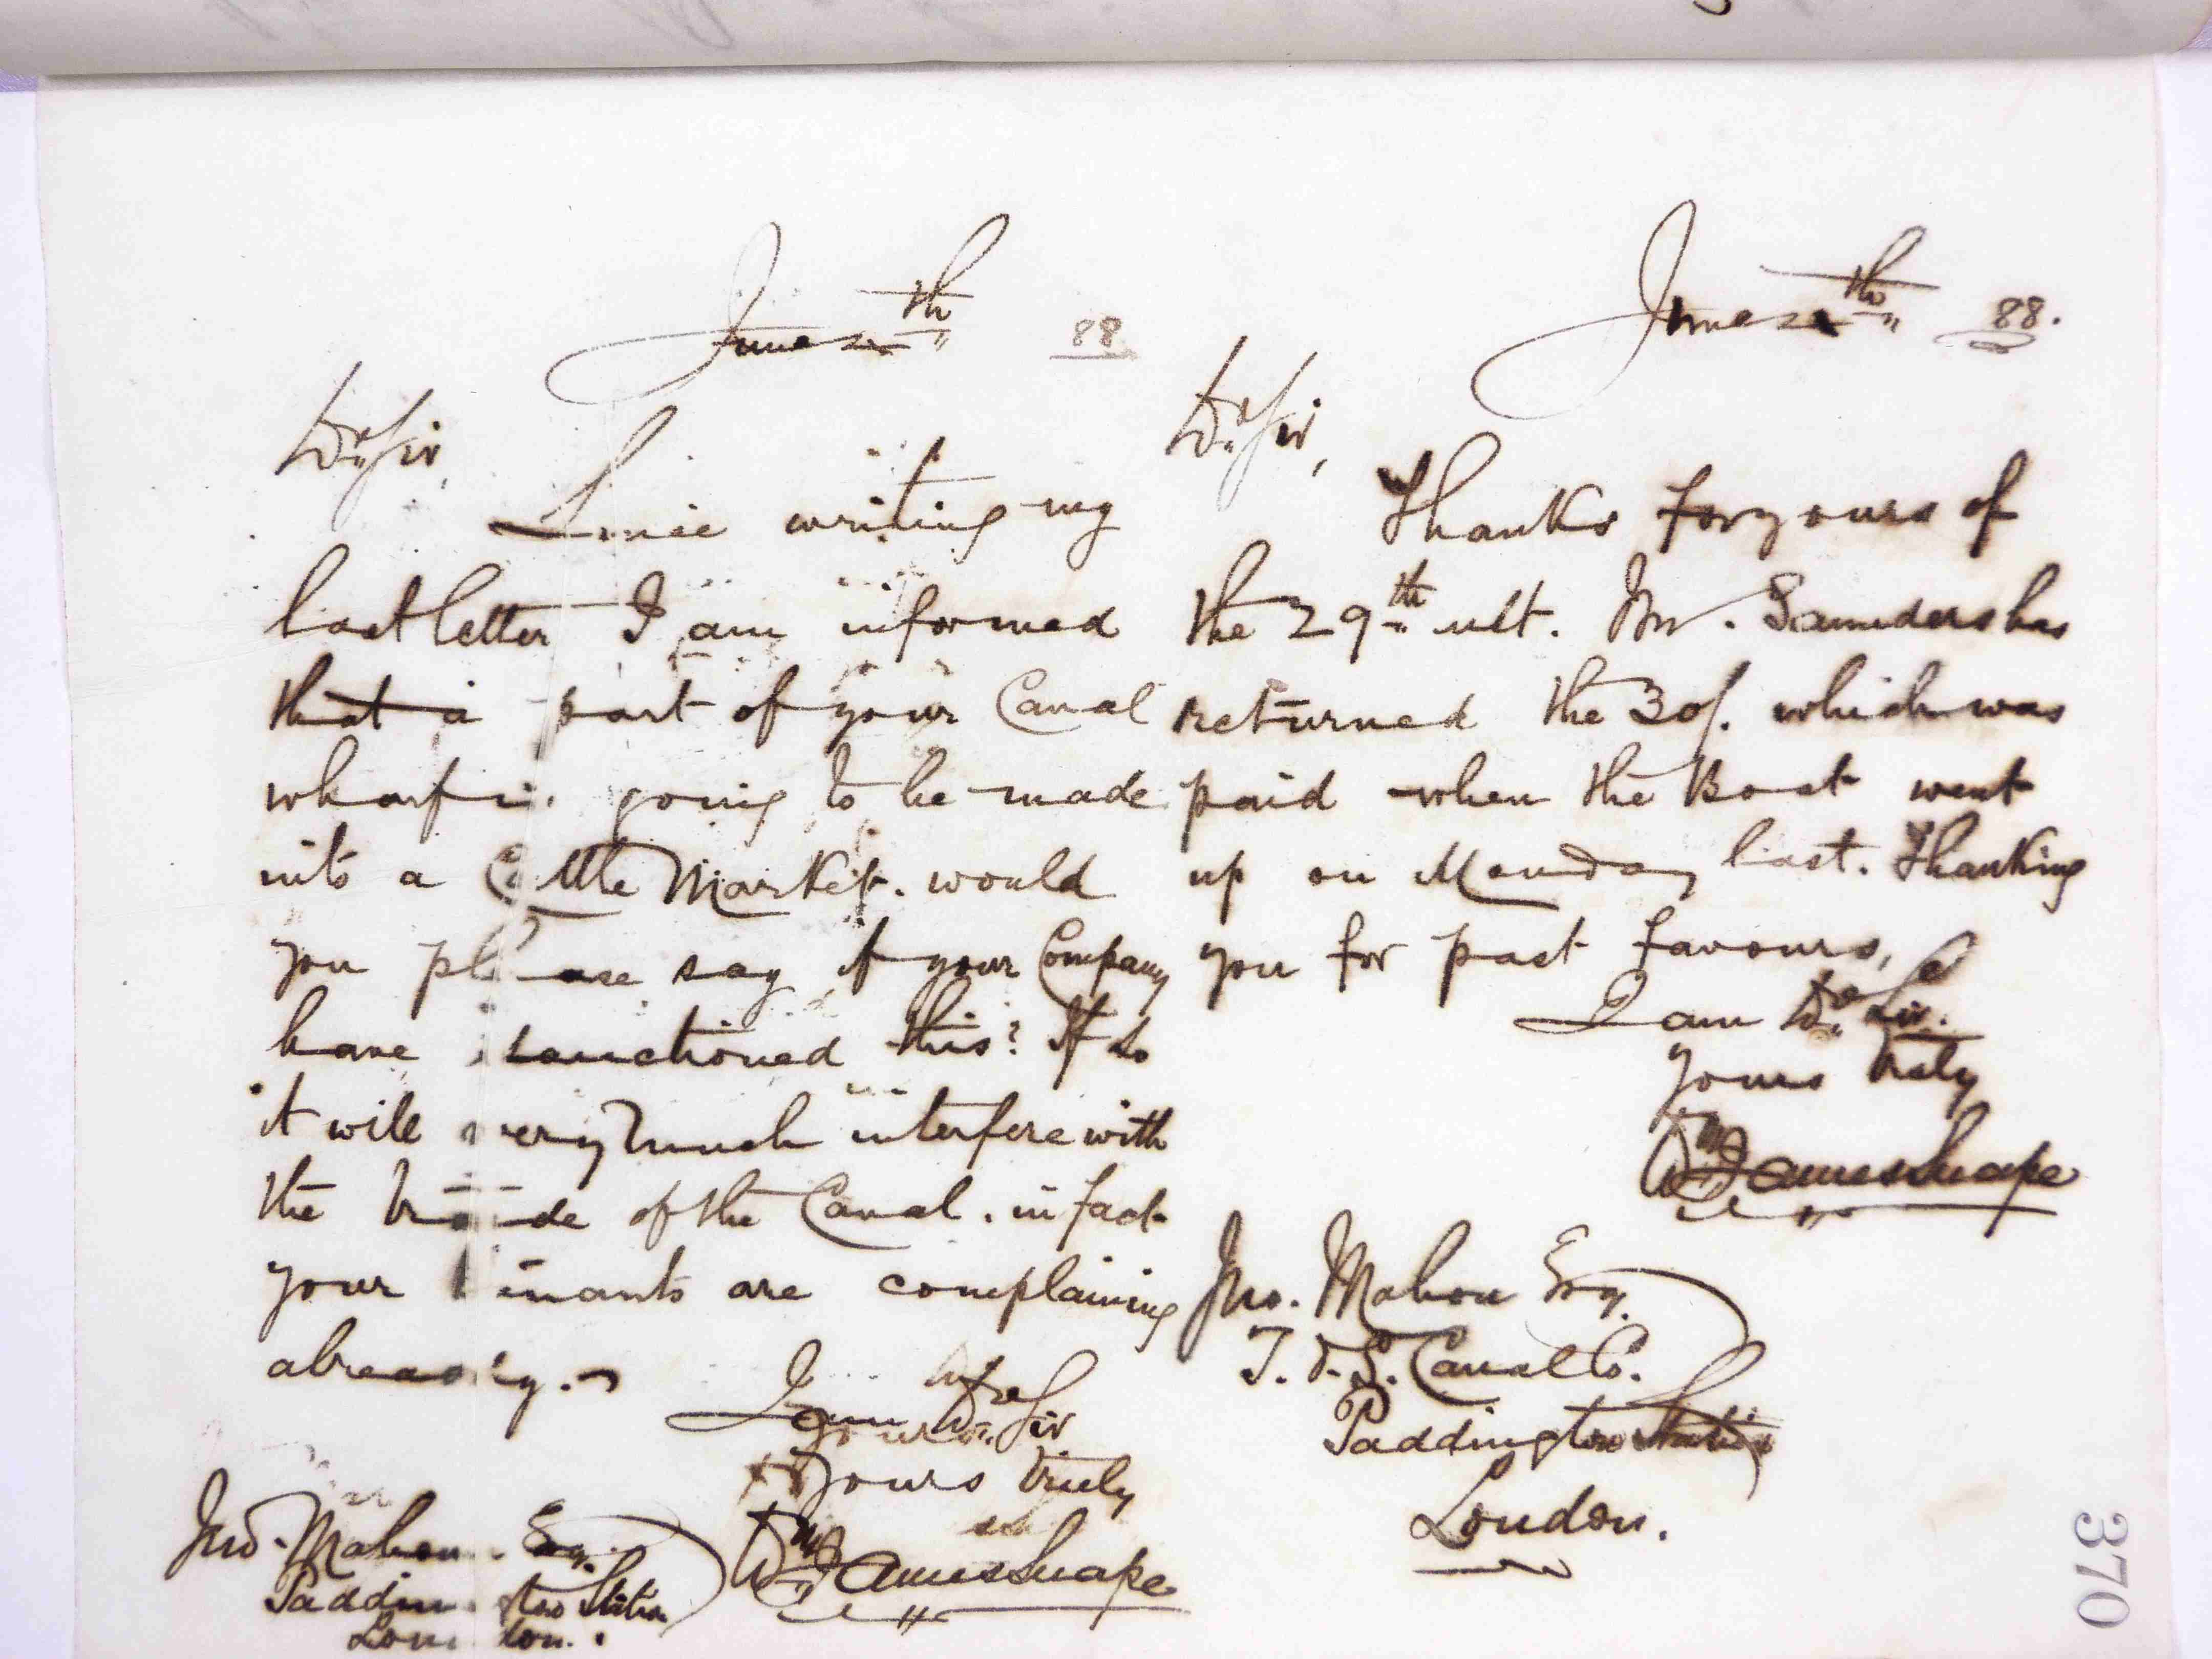 June 2th 88
Dr Sir,
Since writing my
last letter I am informed
that a part of your Canal
wharf is going to be made
into a Cattle Market. would
you please say if your Company
have sanctioned this? If so
it will very much interfere with
the trade of the Canal. in fact
your tenants are complaining
already.
I am Dr Sir
Yours truly
Wm James Snape
Jno. Mahon Esq.
Paddington Station
London.
June 2th 88.
Dr Sir,
Thanks for yours of
the 29th ult. Mr. Saunders has
returned the 30/. which was
paid when the Boat went
up on Monday last. Thanking
you for past favours,
I am Dr Sir.
Yours truly
Wm James Snape
Jno. Mahon Esq.
Canal Co.
Paddington Station
London.
370